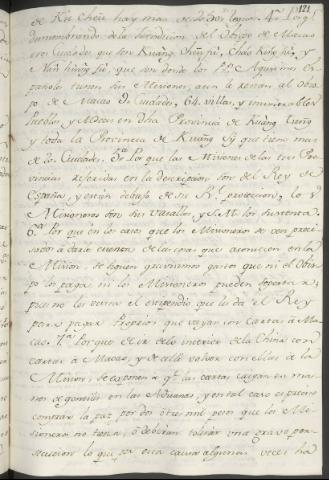 121
de Kú Cheū hay mas de 200 leguas. 4º Porq.e
desmembrando de la Jurisdiccion del Obispo de Macao
tres Ciudades que son Kuàng Cheū fù, Chao Kúng fù, y
Nân hiúng fù, que son donde los PP. Agustinos Es-
pañoles tienen sus Misiones, aun le restan al Obis-
po de Macao Ciudades, 64 villas, y innumerables
Pueblos, y Aldeas en dicha Provincia de Kuàng Tung
y toda la Provincia de Kuàng Sy que tiene mas
de 10 Ciudades. 5º Porque las Misiones de las tres Pro-
vincias referidas en la descripcion son del Rey de
España, y están debajo de su R.l proteccion, los
Misioneros son sus Vasallos, y S. M. los sustenta.
6º Porque en los casos que los Misioneros se ven preci-
sados à darle cuenta de las cosas que acontecen en la
Mision, se siguen gravisimos gastos que ni el Obis-
po los paga ni los Misioneros pueden soportar,
pues no les basta el estipendio que les da el Rey
para pagar Propios que vayan con cartas à Ma-
cao. 7º Porque de ir de lo interior de la China con
cartas à Macao, y de alli volver con ellas à la
Mision, se exponen à q.e las cartas caigan en ma-
nos de gentiles en las Aduanas, y en tal caso es preciso
comprar la paz por dos ò tres mil pesos que los Mi-
sioneros no tienen, ò deberan tolerar una grave per-
secucion lo que por esta causa algunas veces ha